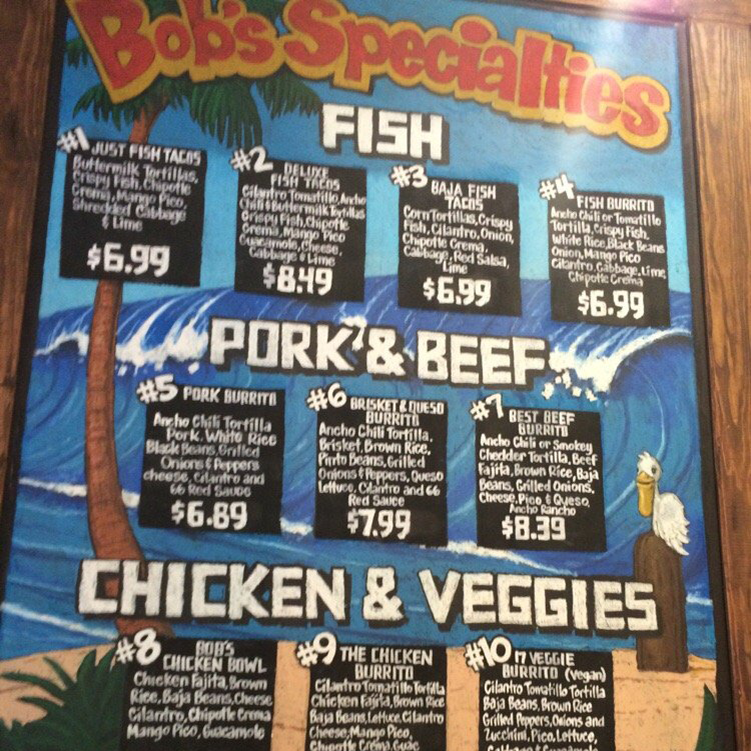 Bob's Specialties
FISH
#1 JUST FISH TACOS
Buttermilk Tortillas,
Crispy Fish, Chipotle
Crema, Mango Pico,
Shredded Cabbage
& Lime
$6.99
#2 DELUXE
FISH TACOS
Cilantro Tomatillo, Ancho
Chili & Buttermilk Tortillas
Crispy Fish, Chipotle
Crema, Mango Pico
Guacamole, Cheese,
Cabbage & Lime
$8.49
#3 BAJA FISH
TACOS
Corn Tortillas, Crispy
Fish, Cilantro, Onion,
Chipotle Crema,
Cabbage, Red Salsa,
Lime
$6.99
#4 FISH BURRITO
Ancho Chili or Tomatillo
Tortilla, Crispy Fish,
White Rice, Black Beans
Onion, Mango Pico
Cilantro, Cabbage, Lime,
Chipotle Crema
$6.99
PORK & BEEF
#5 PORK BURRITO
Ancho Chili Tortilla
Pork, White Rice
Black Beans, Grilled
Onions & Peppers
cheese, Cilantro and
66 Red Sauce
$6.89
#6 BRISKET & QUESO
BURRITO
Ancho Chili Tortilla,
Brisket, Brown Rice,
Pinto Beans, Grilled
Onions & Peppers, Queso
Lettuce, Cilantro and 66
Red Sauce
$7.99
#7 BEST BEEF
BURRITO
Ancho Chili or Smokey
Chedder Tortilla, Beef
Fajita, Brown Rice, Baja
Beans, Grilled Onions,
Cheese, Pico & Queso,
Ancho Rancho
$8.39
CHICKEN & VEGGIES
#8 BOB'S
CHICKEN BOWL
Chicken Fajita, Brown
Rice, Baja Beans, Cheese
Cilantro, Chipotle Crema
Mango Pico, Guacamole
#9 THE CHICKEN
BURRITO
Cilantro Tomatillo Tortilla
Chicken Fajita, Brown Rice
Baja Beans, Lettuce, Cilantro
Cheese, Mango Pico,
Chipotle Crema, Guac
#10 17 VEGGIE
BURRITO (vegan)
Cilantro Tomatillo Tortilla
Baja Beans, Brown Rice
Grilled Peppers, Onions and
Zucchini, Pico, Lettuce,
Cabbage & Guacamole